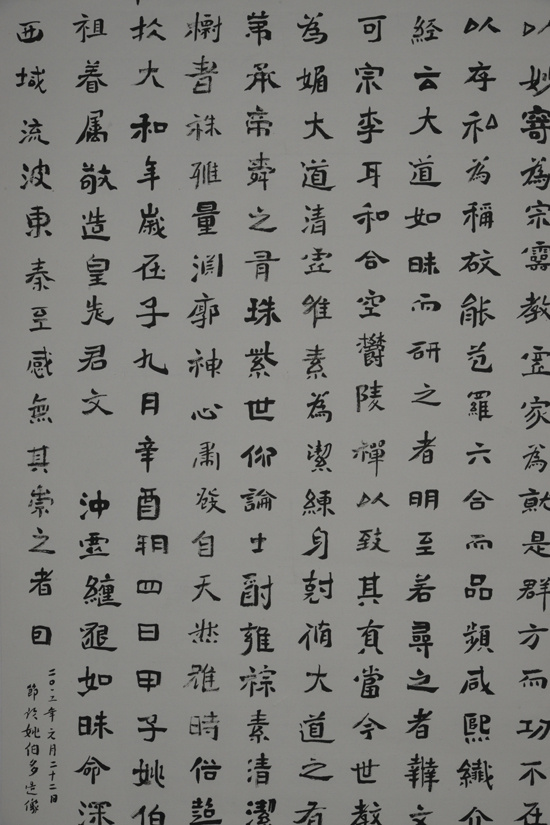 以妙寄為宗靈教虛家為就是群方而功不在
以存私為稱故能苞羅六合而品頻咸熙纖介
経云大道如昧而研之者明至若尋之者韡文
可宗李耳和合空欝陵禪以致其真當今世教
為媚大道清虛雖素為潔練身尅脩大道之有
第承帝舜之胄珠紫世仰論士酎雍琮素清潔
者殊雅量淵廓神心肅發自天然雖時俗
於大和年歲在子九月辛酉朔四日甲子姚伯
祖眷属敬造皇先君文 沖虛纏邈如昧命深
西域流波東秦至感無其崇之者曰
二〇一二年元月二十二日
節臨姚伯多造像